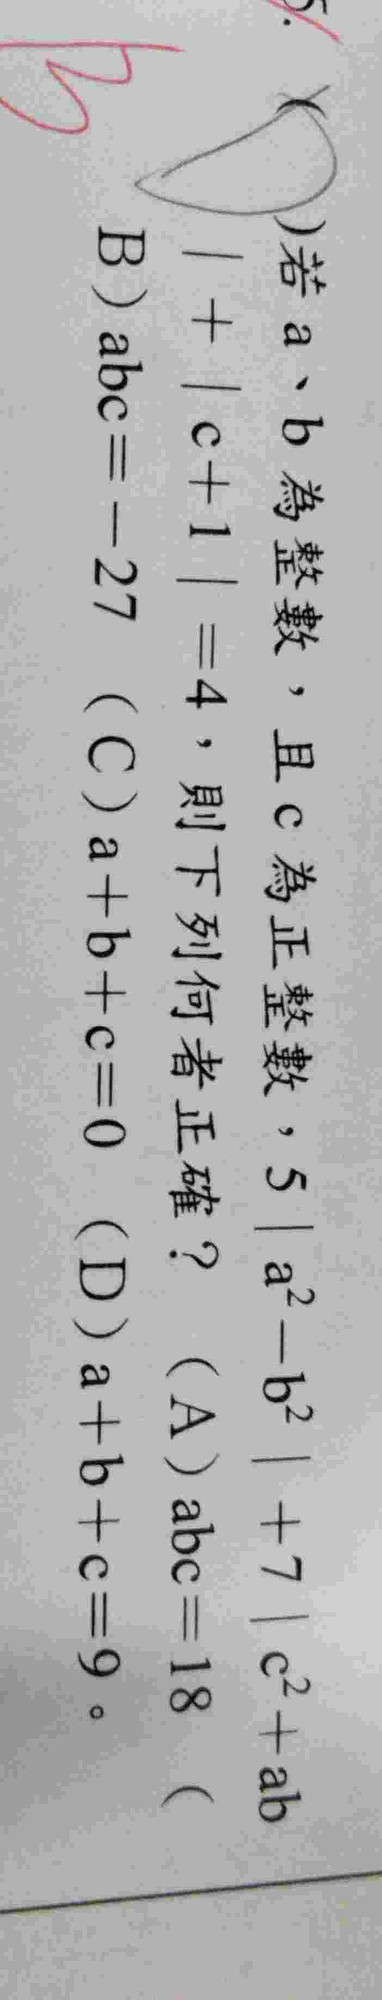 5. ( )若 a、b 為整數，且 c 為正整數，5｜a²－b²｜+7｜c²+ab
｜+｜c+1｜=4，則下列何者正確？ (A) abc=18 (
B) abc=－27 (C) a+b+c=0 (D) a+b+c=9。